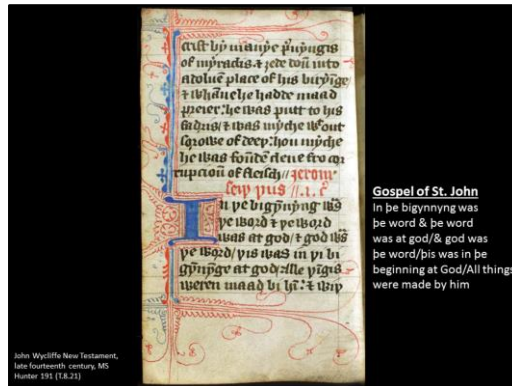 crist bi manye
of myraclis & ȝede doun into
a doluen place of his biryinge/
& whanne he hadde maad
preier: he was putt to his
fadris/ & was myche wiþout
sorowe of deeþ: hou myche
he was founden clene fro cor
rupcioun of fleisch// Jerom
seiþ þus //.1. c̄
In þe bigynnyng was
þe word & þe word
was at god/ & god was
þe word/ þis was in þe bi
gynnynge at god/ alle þingis
weren maad bi him: & wiþ
Gospel of St. John
In þe bigynnyng was
þe word & þe word
was at god/& god was
þe word/þis was in þe
beginning at God/All things
were made by him
John Wycliffe New Testament,
late fourteenth century, MS
Hunter 191 (T.8.21)